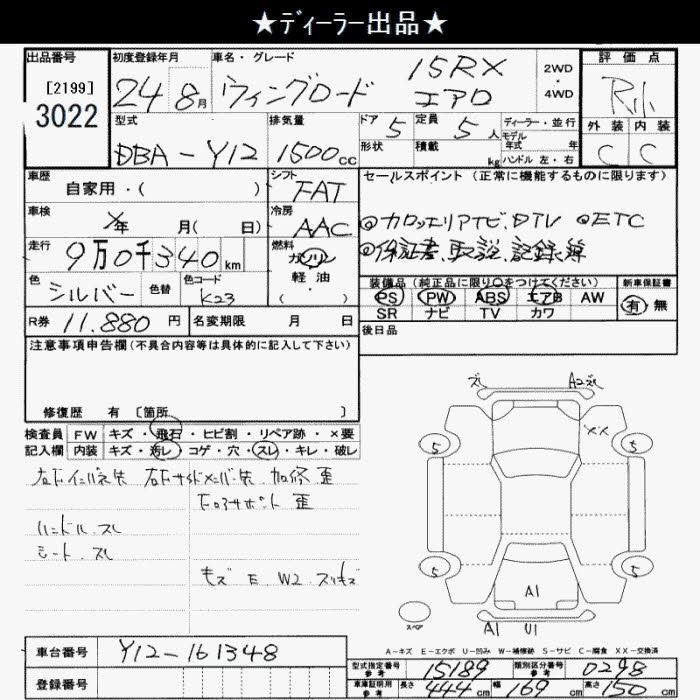 ★ディーラー出品★
出品番号
[2199]
3022
初度登録年月
24年 8月
車名・グレード
ウイングロード 15RX エアロ
2WD・4WD
評価点
R小
外装 内装
C C
型式
DBA-Y12
排気量
1500cc
ドア 5
形状
定員 5人
積載 kg
ディーラー・並行
モデル年式 年
ハンドル 左・右
車歴
自家用・( )
シフト
FAT
車検
X年 月( 日)
冷房
AAC
走行
9万0千340km
燃料
ガソリン
軽油
( )
色
シルバー
色替
色コード
K23
R券 11.880円
名変期限 月 日
セールスポイント(正常に機能するものに限ります)
◎カロッェリアナビ.DTV ◎ETC
◎保証書.取説.記録簿
装備品(純正品に限り○をつけてください)
PS PW ABS エアB AW
SR ナビ TV カワ
新車保証書
有・無
後日品
注意事項申告欄(不具合内容等は具体的に記入して下さい)
修復歴 有 〔箇所 〕
検査員記入欄
FW キズ・飛石・ヒビ割・リペア跡・×要
内装 キズ・汚レ・コゲ・穴・スレ・キレ・破レ
ハンドル.スレ
シート.スレ
キズ E W2 スリキズ
ズレ A2ズレ
XX
5 5
5 5
A1
A1 U1
スペア
A-キズ E-エクボ U-凹み W-補修跡 S-サビ C-腐食 XX-交換済
車台番号 Y12-161348
登録番号
型式指定番号 参考 15189
類別区分番号 参考 0298
車庫証明用 参考 長さ 444cm 幅 169cm 高さ 150cm